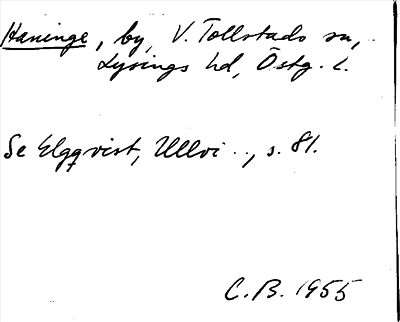 Haninge, by, V. Tollstads sn,
Lysings hd, Östg. l.
Se Elgqvist, Ullvi .., s. 81.
C.B. 1955